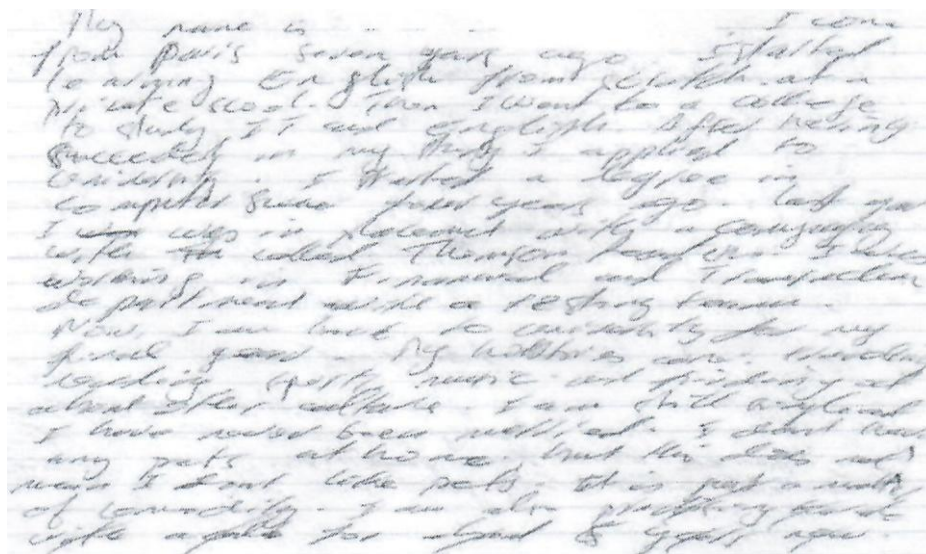 My name is I come
from paris seven years ago I started
learning English from scratch at a
private scool. Then I went to a college
to study IT and english. After having
succeeded in my I applied to
university. I started a degree in
computer four years ago. last year
I was in with a company
with called Thomson I was
working in Financial and
department with a testing
Now, I am back to university for my
final year. My hobbies are
reading sports, music and finding out
about other culture. I am still
I have never been married. I dont have
any pets at home, but this does not
mean I dont like pets. it is just a
of I am also
with a for about 8 years now.